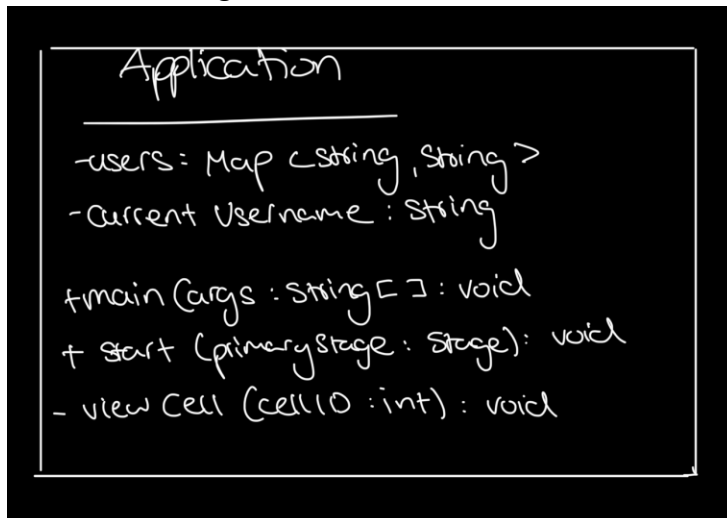 Application
-users: Map <string, String>
-current Username: String
+main(args: String[]: void
+ start (primaryStage: Stage): void
- view Cell (cellID: int): void